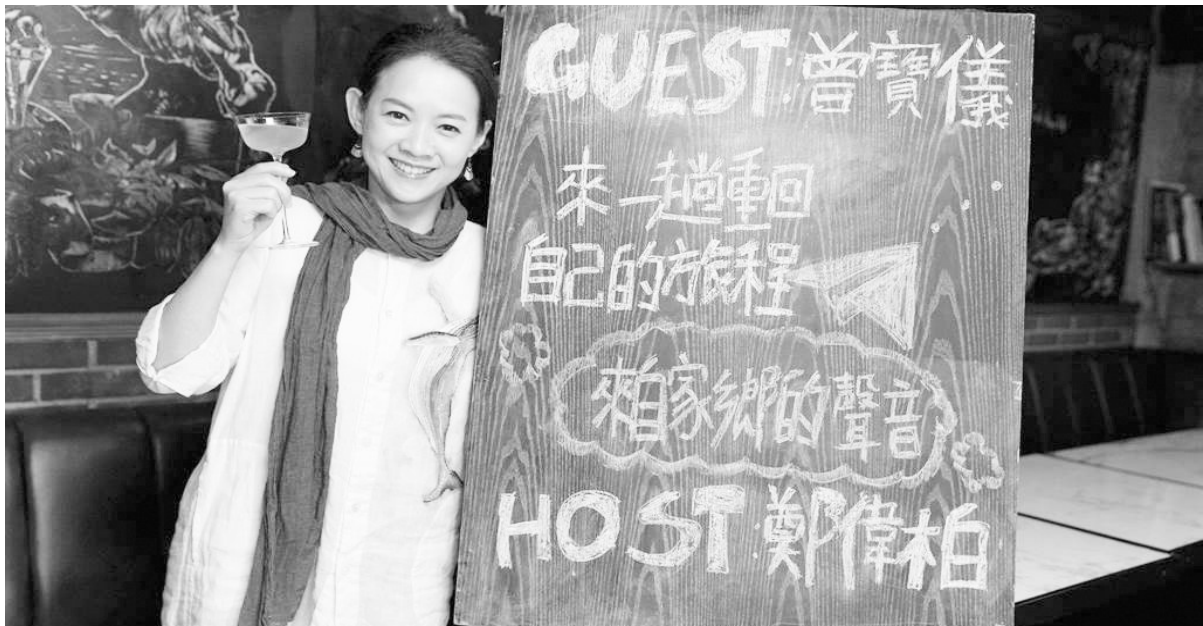 GUEST:曾寶儀
來一趟重回
自己的旅程
來自家鄉的聲音
HOST:鄭偉柏